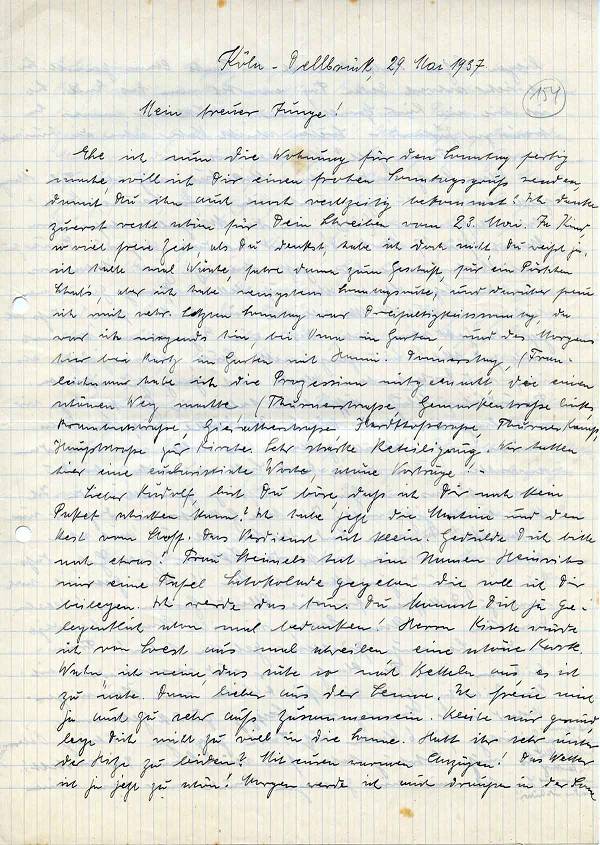 Köln - Dellbrück, 29 Mai 1937
154
Mein treuer Junge!
Ehe ich nun die Wohnung für den Sonntag fertig
mache, will ich Dir einen frohen Sonntagsgruß senden,
damit Du ihn auch noch rechtzeitig bekommst? Ich danke
zuerst recht schön für Dein Schreiben vom 23. Mai. Ja Kind,
so viel freie Zeit als Du denkst, habe ich doch nicht, Du weißt ja,
ich halte mal Wäsche, fahre dann zum Geschäft, für ein Pärchen
Schuhe, aber ich habe wenigstens Sonntagsruhe, und darüber freue
ich mich sehr. Letzten Sonntag war Dreifaltigkeitssonntag, da
war ich nirgends hin, bei Unna im Garten, und des Morgens
hier bei Kurtz im Garten mit Hanni. Donnerstag, (Fron-
leichnam habe ich die Prozession mitgemacht die einen
schönen Weg machte (Thurnerstraße, Gemarkenstraße links,
Grafenmühlenweg
Hauptstraße zur Kirche. Sehr starke Beteiligung. Wir hatten
hier eine eucharistische Woche, schöne Vorträge! -
Lieber Rudolf, bist Du böse, daß ich Dir noch kein
Paket schicken kann? Ich habe jetzt die Martine und den
Rest vom Stoff. Das Verdienst ist klein. Gedulde Dich bitte
noch etwas! Frau Steimels hat im Namen Heinrichs
mir eine Tafel Schokolade gegeben die soll ich Dir
beilegen. Ich werde das tun. Du kannst Dich ja ge-
legentlich schon mal bedanken! Herrn Kirsch würde
ich von Soest aus mal schreiben eine schöne Karte.
Weißt ich meine, das sähe so nach Betteln aus, es ist
zu nahe. Dann lieber aus der Senne. Ich freue mich
ja auch zu sehr aufs Zusammensein. Bleibe mir gesund,
lege Dich nicht zu viel in die Sonne. Habt ihr sehr unter
der Hitze zu leiden? Mit euren warmen Anzügen! Das Wetter
ist ja jetzt zu schön! Morgen werde ich auch draußen in der Sonne